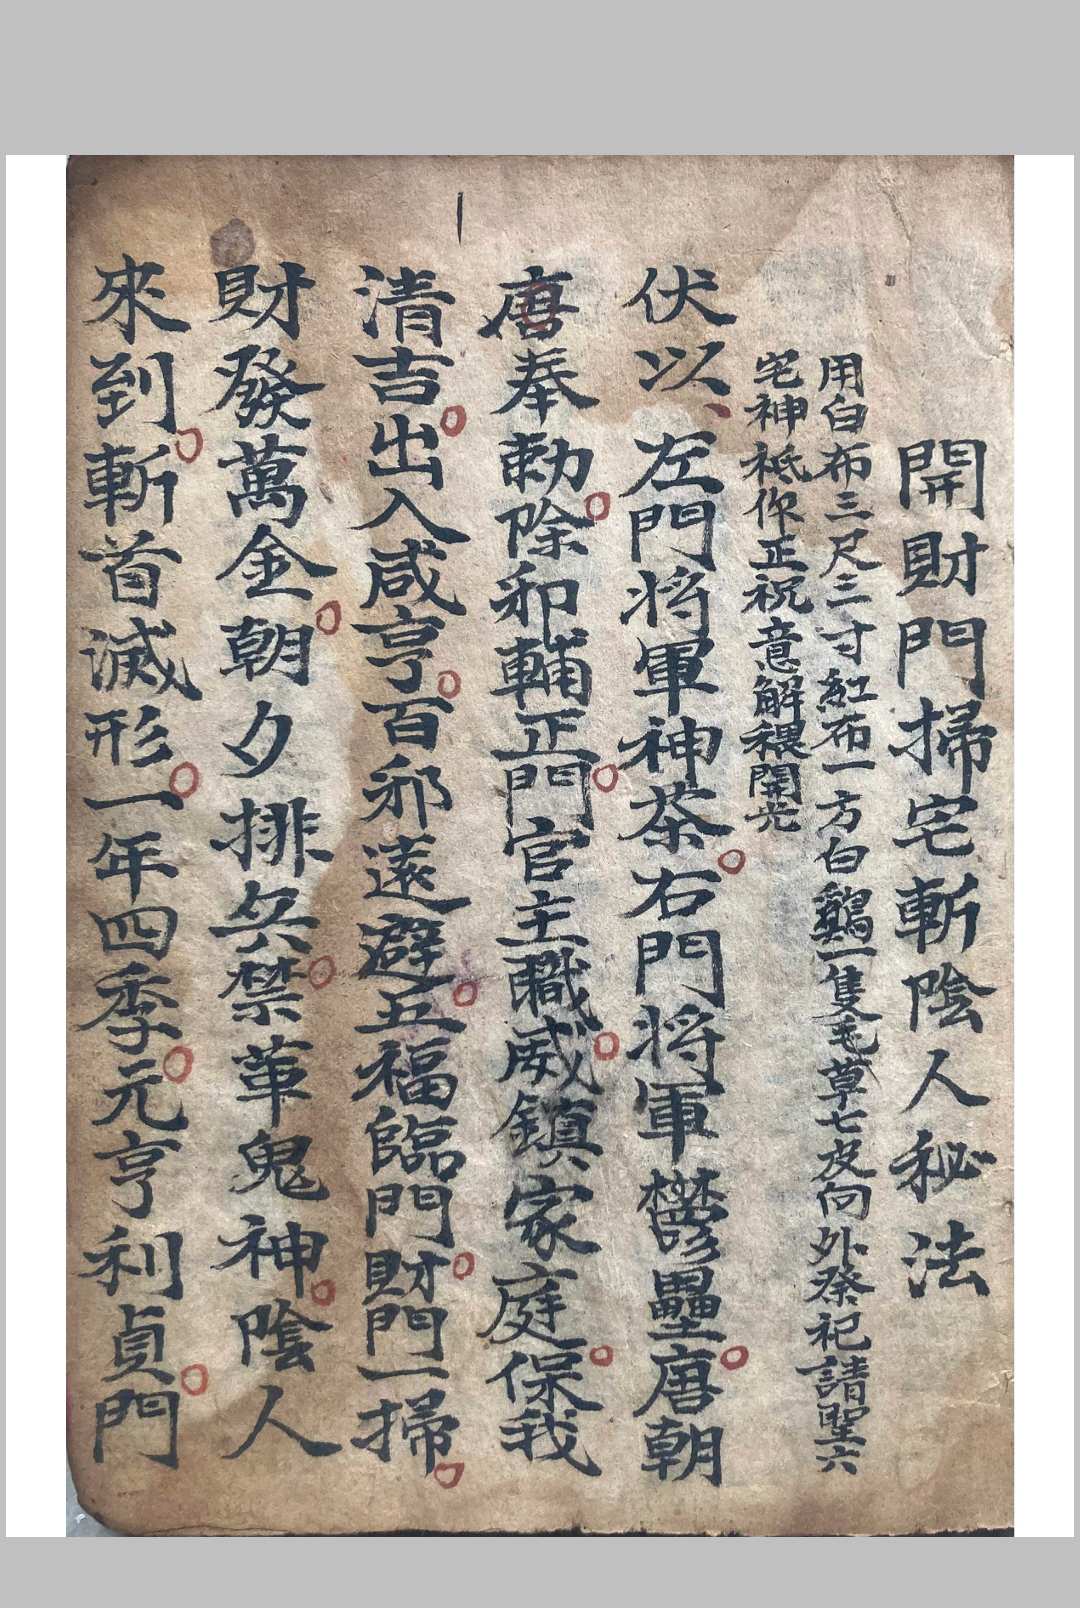 開財門掃宅斬陰人秘法
用白布三尺三寸紅布一方白鷄一隻毛草七皮向外祭祀請聖六
宅神祇作正祝意解穢開光
伏以、左門将軍神荼。右門将軍鬱壘。唐朝
唐奉勅。除邪輔正。門官主職。威鎮家庭。保我
清吉。出入咸亨。百邪遠避。五福臨門。財門一掃。
財發萬金。朝夕排兵。禁革鬼神。陰人
來到。斬首滅形。一年四季。元亨利貞。門